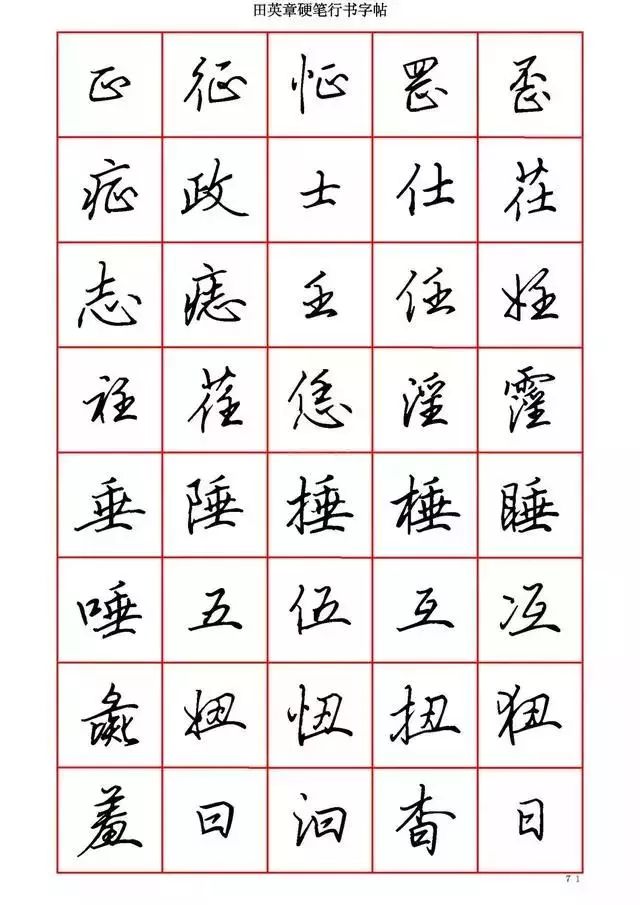 田英章硬笔行书字帖
正征怔罡歪
症政士仕茌
志痣壬任妊
衽荏恁淫霪
垂陲捶棰睡
唾五伍互冱
蠡妞忸扭狃
羞曰汩杳日
71